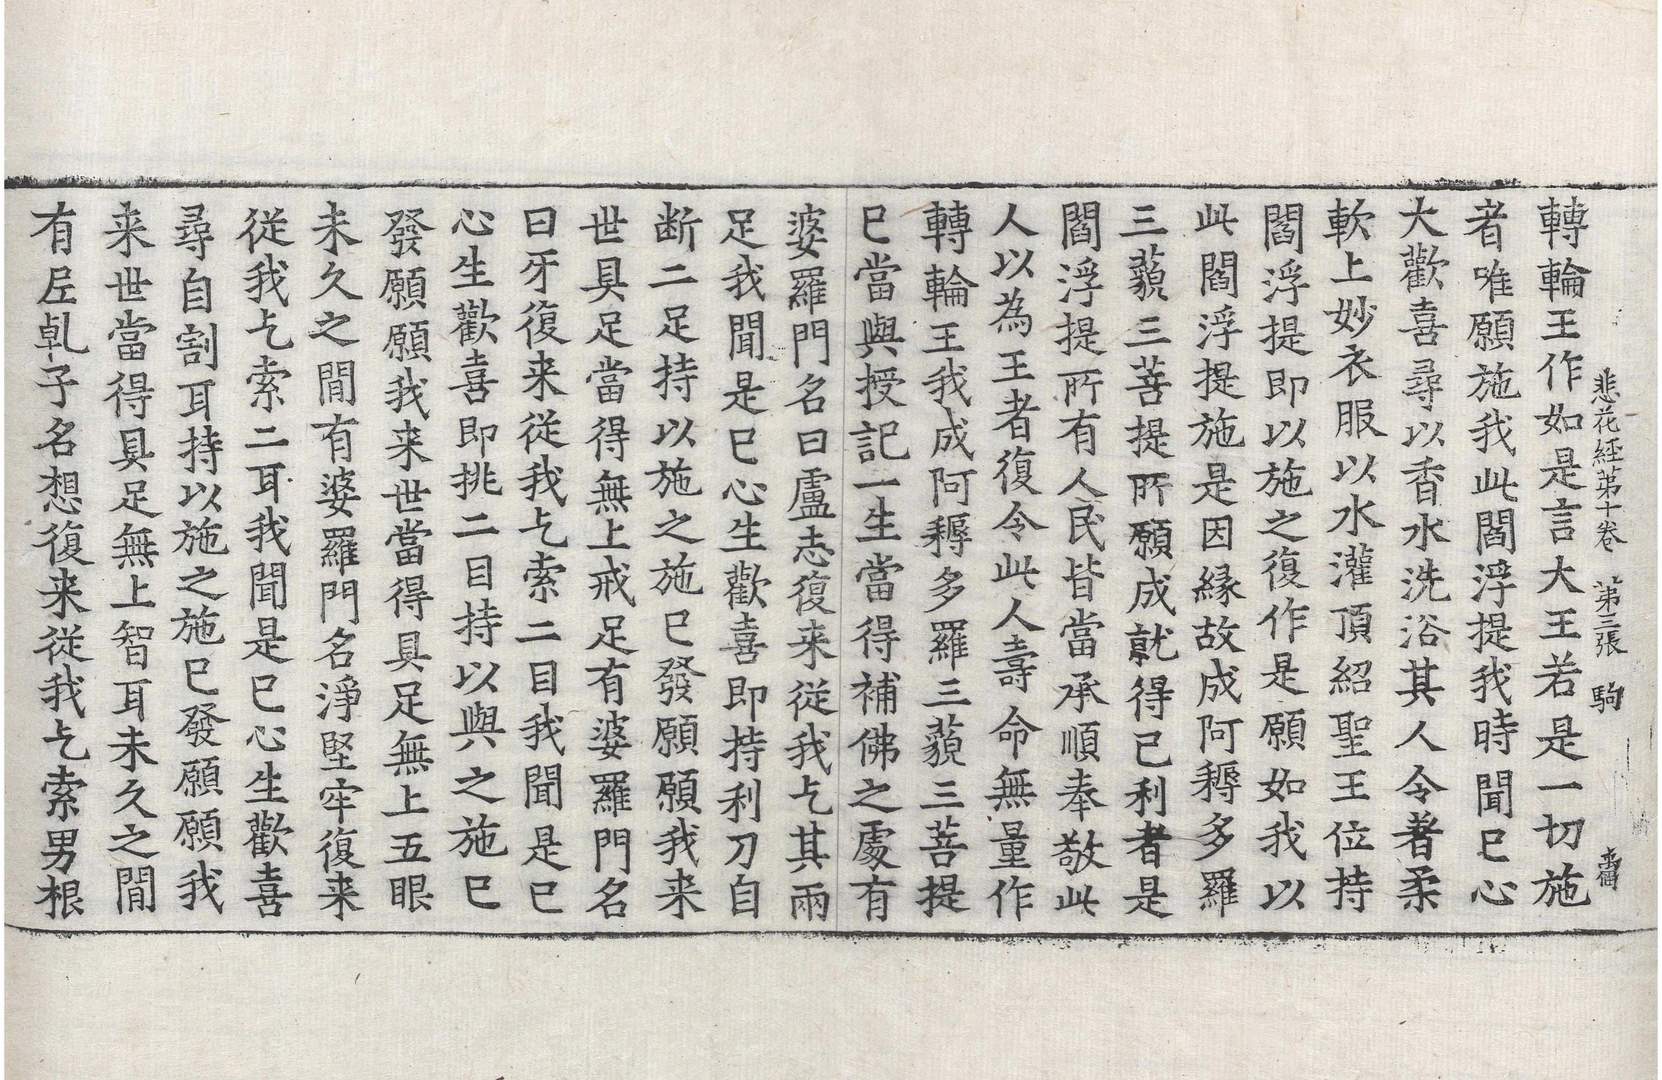 悲花経第十卷 第三張 駒
轉輪王作如是言大王若是一切施
者唯願施我此閻浮提我時聞已心
大歡喜尋以香水洗浴其人令著柔
軟上妙衣服以水灌頂紹聖王位持
閻浮提即以施之復作是願如我以
此閻浮提施是因緣故成阿耨多羅
三藐三菩提所願成就得己利者是
閻浮提所有人民皆當承順奉敬此
人以為王者復令此人壽命無量作
轉輪王我成阿耨多羅三藐三菩提
已當與授記一生當得補佛之處有
婆羅門名曰盧志復来從我乞其兩
足我聞是已心生歡喜即持利刀自
断二足持以施之施已發願願我来
世具足當得無上戒足有婆羅門名
曰牙復来從我乞索二目我聞是已
心生歡喜即挑二目持以與之施已
發願願我来世當得具足無上五眼
未久之間有婆羅門名淨堅牢復来
從我乞索二耳我聞是已心生歡喜
尋自割耳持以施之施已發願願我
来世當得具足無上智耳未久之間
有尼乹子名想復来從我乞索男根